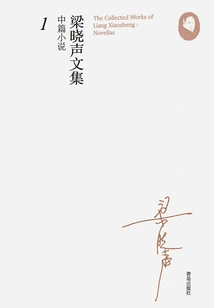 The Collected Works of
Liang Xiaosheng :
Novellas
梁晓声文集
中篇小说
1
梁晓声
青岛出版社